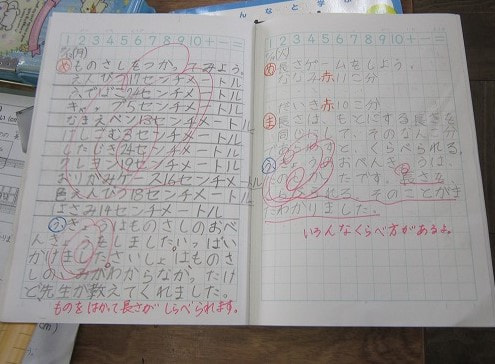 (月)
め ものさしをつかってみよう。
えんぴつ17センチメートル
ふでばこ24センチメートル
キャップ5センチメートル
なまえペン13センチメートル
けしごむ3センチメートル
したじき24センチメートル
クレヨン19センチメートル
おりがみケース16センチメートル
色えんぴつ18センチメートル
はさみ14センチメートル
きょうはものさしのおべ
んきょうをしました。いっぱい
かけました。さいしょはものさ
しのよみかわからなかったけ
ど先生が教えてくれました。
ものをはかって長さがしらべられます。
(火)
め 長さゲームをしよう。
ななみ赤11こ分
だいき赤10こ分
ま 長さは、もとにする長さを
同じにして、そのなんこ分
であらわすと、くらべられる。
きょうのおべんきょうは
たです。長さを
くらべられる、そのことがま
たわかりました。
いろんなくらべ方があるよ。